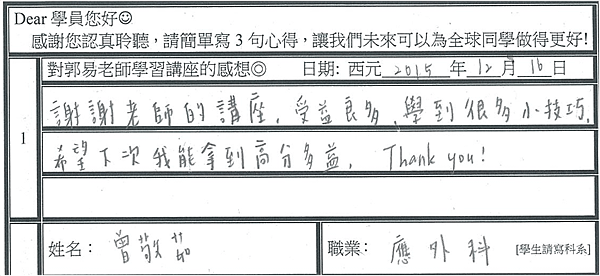 Dear 學員您好☺
感謝您認真聆聽，請簡單寫 3 句心得，讓我們未來可以為全球同學做得更好!
對郭易老師學習講座的感想◎ 日期: 西元 2015 年 12 月 16 日
1
謝謝老師的講座，受益良多，學到很多小技巧，
希望下次我能拿到高分多益， Thank you!
姓名： 曾敬茹 職業： 應外科 [學生請寫科系]